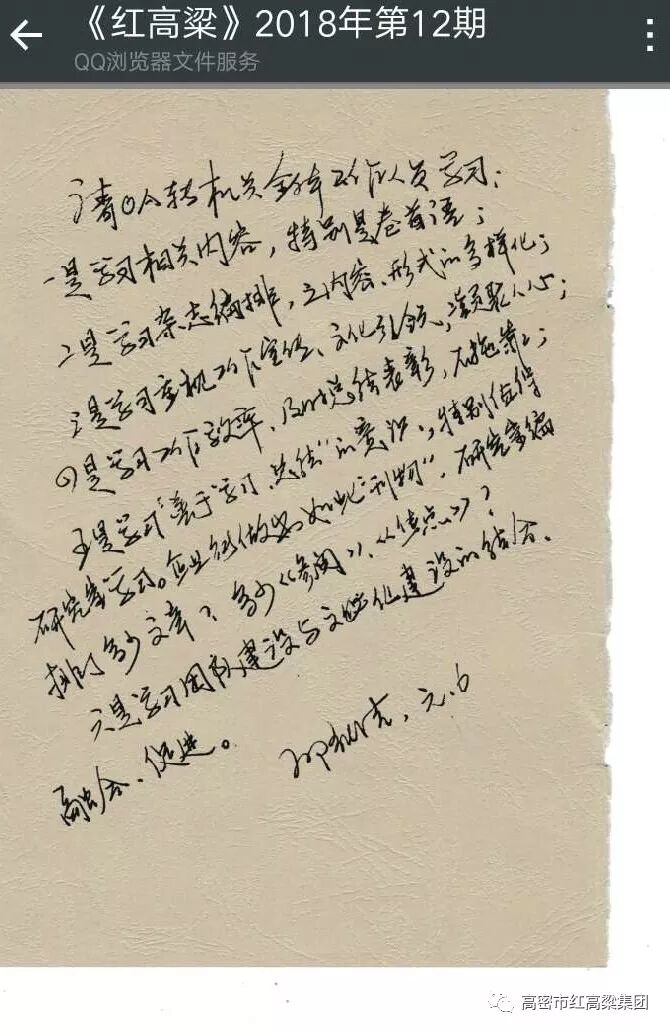 《红高粱》2018年第12期
QQ浏览器文件服务
请OA转机关全体工作人员学习：
一是学习相关内容，特别是卷首语；
二是学习杂志编排，之内容、形式的多样化；
三是学习重视工作宣传、文化引领，凝聚人心；
四是学习工作效率，及时总结表彰，不拖靠；
五是学习“善于”学习、总结”的意识，特别值得
研究室学习。企业能做出如此“刊物”，研究室编
排了多少文章？多少《参阅》、《焦点》？
六是学习团队建设与文化建设的结合、
融合、促进。
元.6
高密市红高粱集团